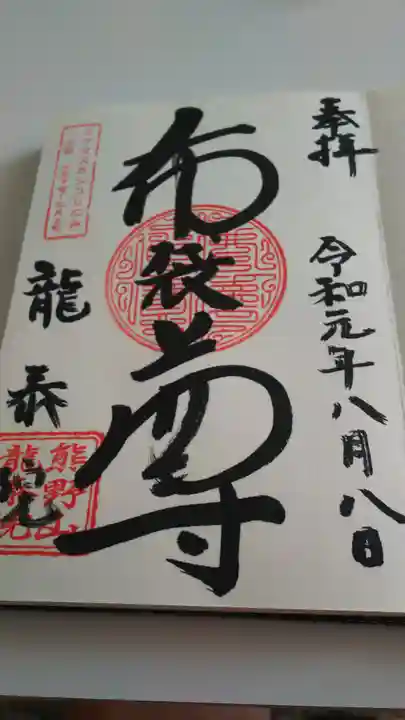 奉拝
令和元年八月八日
布袋尊
龍泰院
熊野山